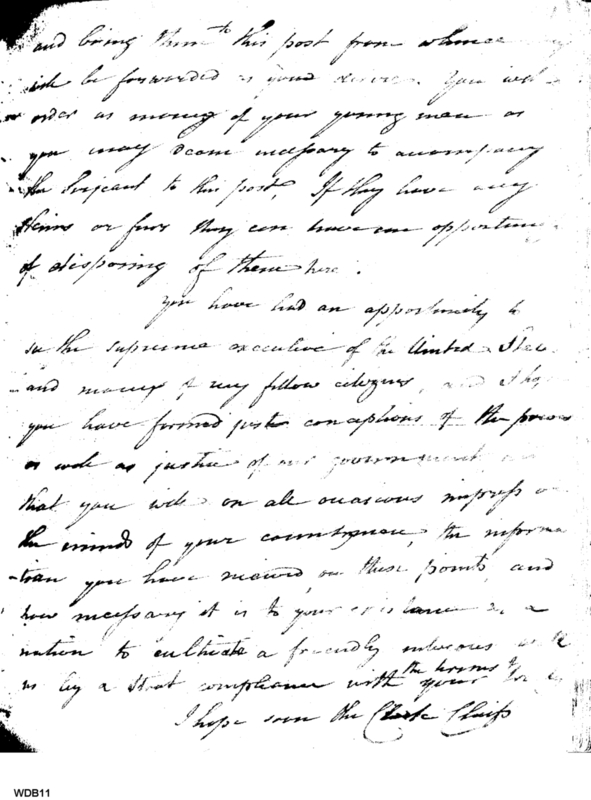 and bring them to this post from whence
will be forwarded as you desire. You will
order as many of your young men as
you may deem necessary to accompany
the Serjeant to this post, If they have any
skins or furs they can have an opportun
of disposing of them here.
You have had an opportunity to
see the supreme executive of the United States
and many of my fellow citizens, and I hope
you have formed just conceptions of the power
as well as justice of our government and
that you will on all occasions impress on
the minds of your countrymen, the informa
-tion you have received, on these points, and
how necessary it is to your existance as a
nation to cultivate a friendly intercourse with
us by a strict compliance with the terms of your
I hope soon the Chiefs
WDB11